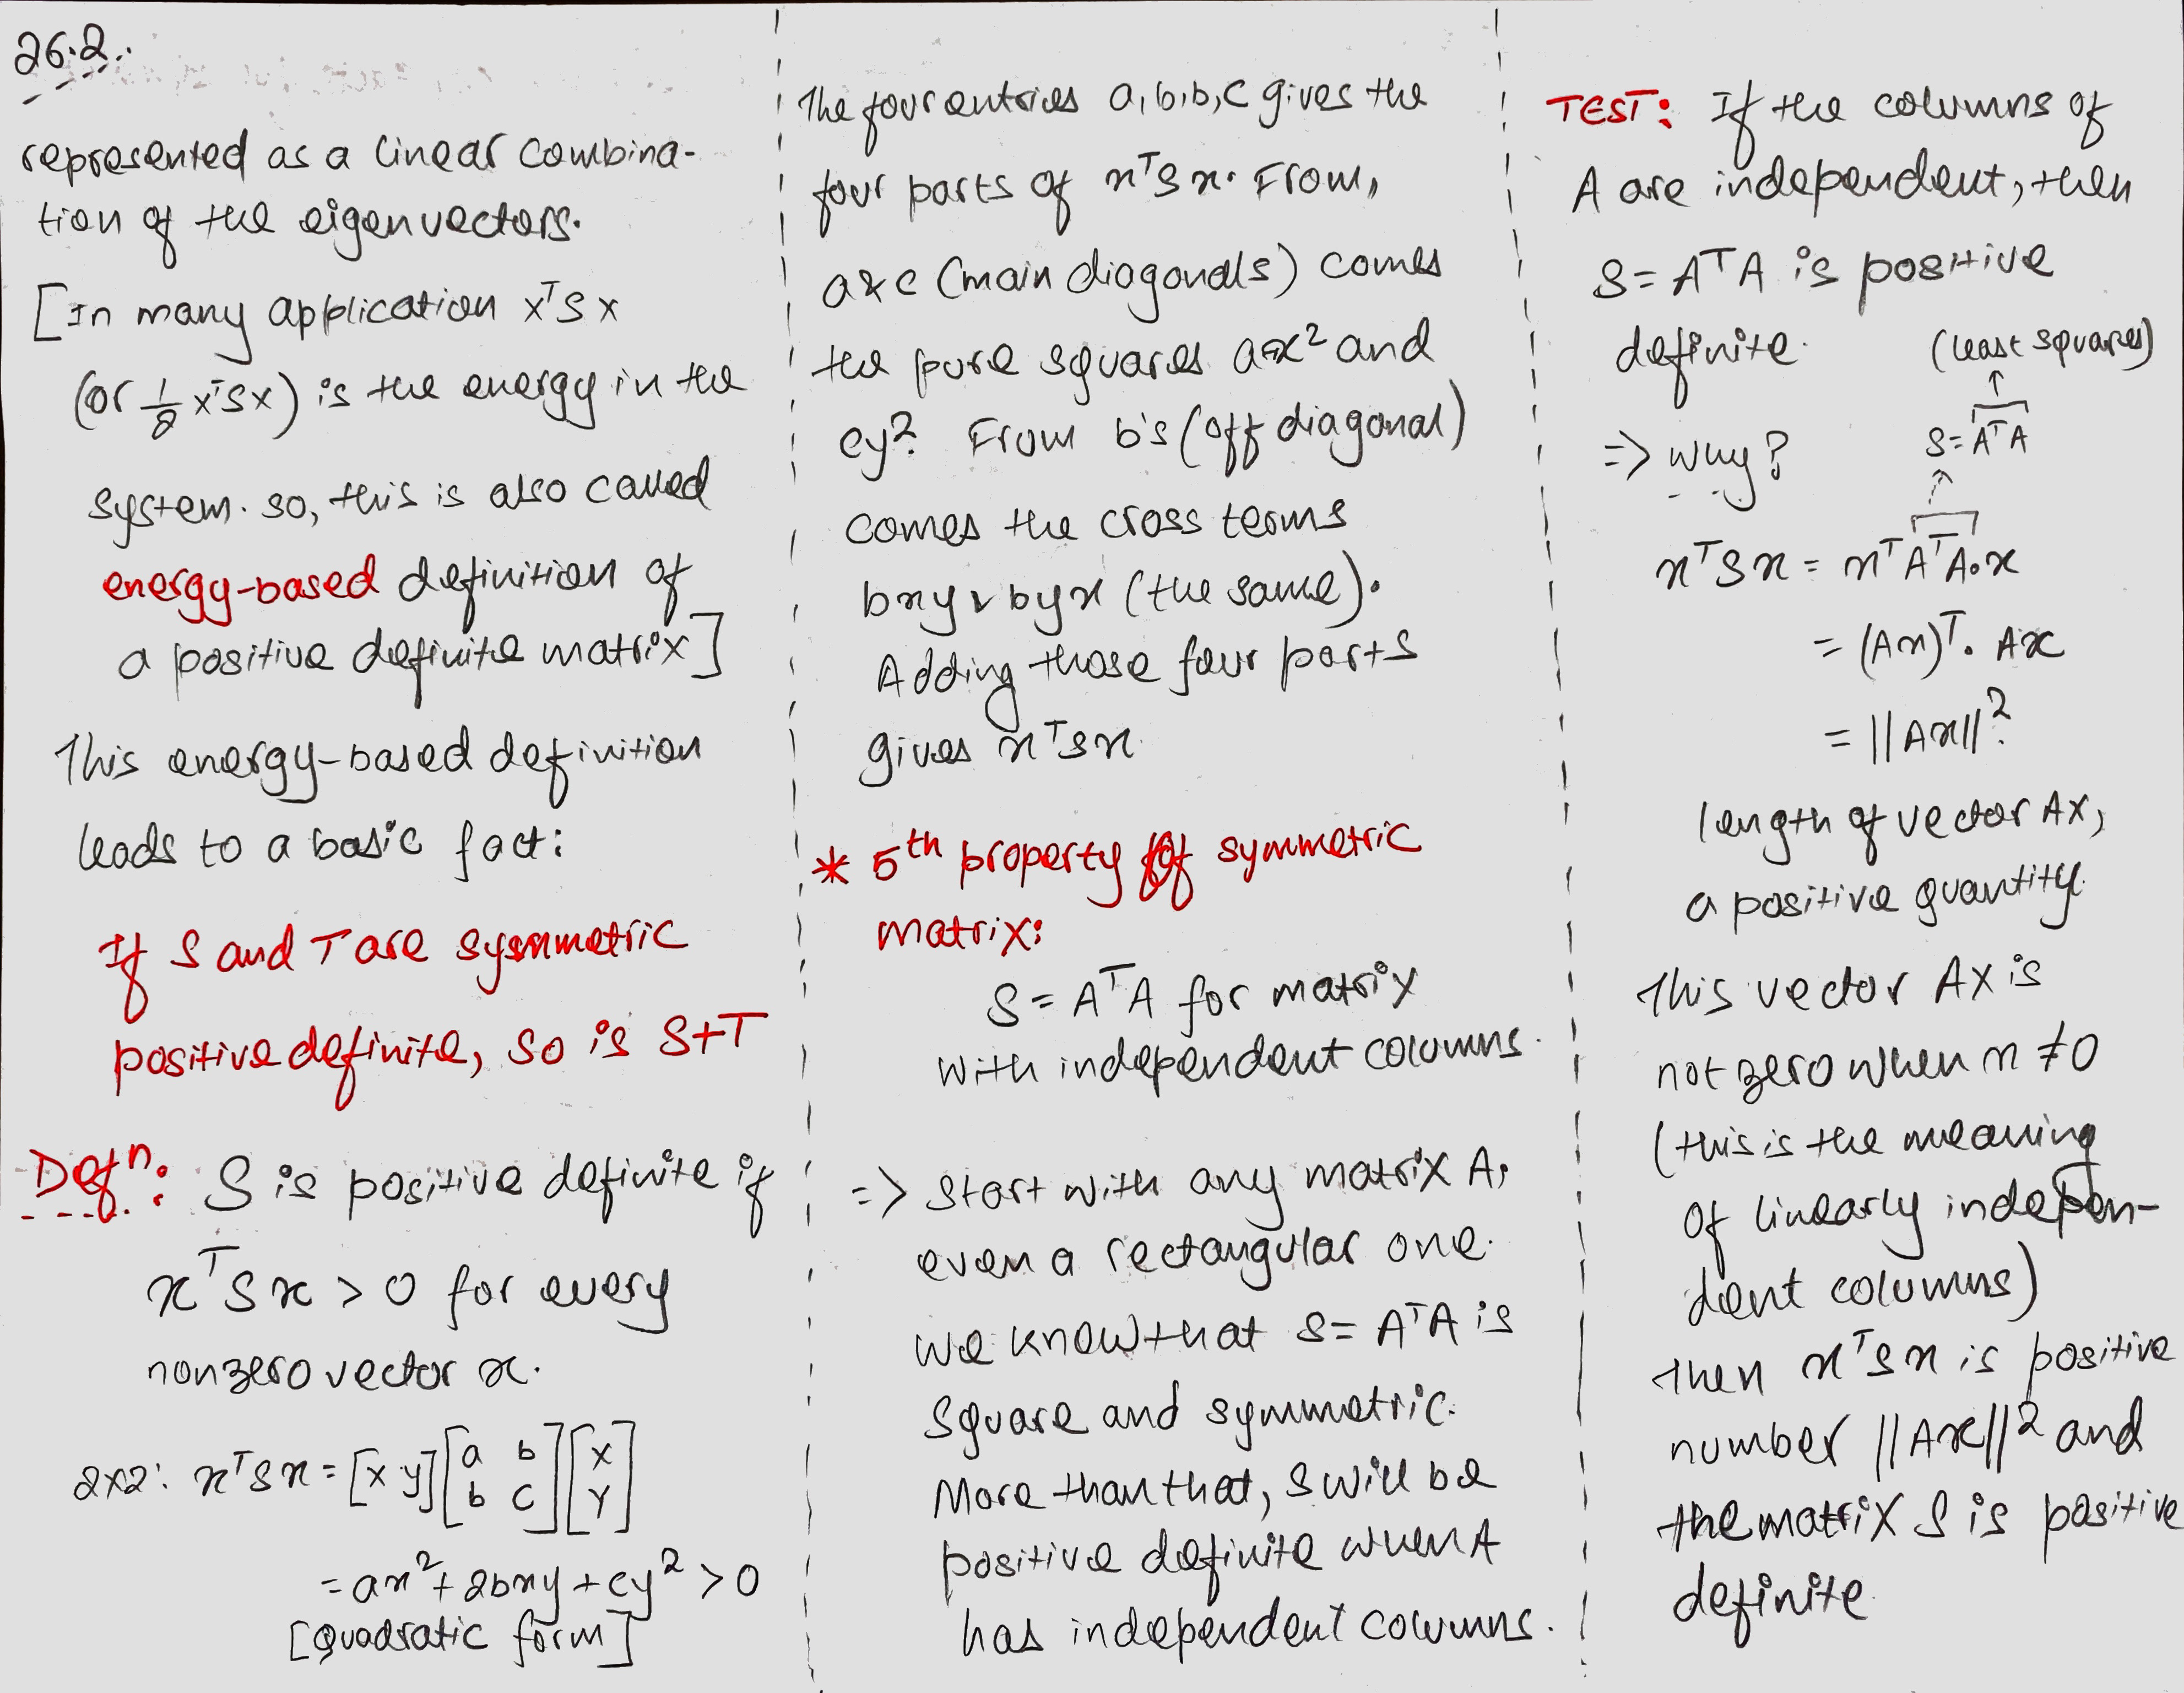 26.2.
represented as a linear combina-
tion of the eigenvectors.
[In many application xᵀSx
(or ½ xᵀSx) is the energy in the
system. so, this is also called
energy-based definition of
a positive definite matrix]
This energy-based definition
leads to a basic fact:
If S and T are sysmmetric
positive definite, so is S+T
Defⁿ: S is positive definite if
xᵀSx > 0 for every
nonzero vector x.
2x2: xᵀSx = [x y] [a b; b c] [x; y]
= ax² + 2bxy + cy² > 0
[Quadratic form]
The four entries a, b, b, c gives the
four parts of xᵀSx. From,
a & c (main diagonals) comes
the pure squares ax² and
cy². From b's (off diagonal)
comes the cross terms
bxy & byx (the same).
Adding those four parts
gives xᵀSx
* 5th property of symmetric
matrix:
S = AᵀA for matrix
with independent columns.
=> start with any matrix A,
even a rectangular one.
we know that S = AᵀA is
square and symmetric.
More than that, S will be
positive definite when A
has independent columns.
TEST: If the columns of
A are independent, then
S = AᵀA is positive
definite.
(least squares)
↑
S = AᵀA
=> why?
xᵀSx = xᵀAᵀA.x
= (Ax)ᵀ. Ax
= ||Ax||².
length of vector Ax,
a positive quantity.
This vector Ax is
not zero when x ≠ 0
(this is the meaning
of linearly indepen-
dent columns)
then xᵀSx is positive
number ||Ax||² and
the matrix S is positive
definite